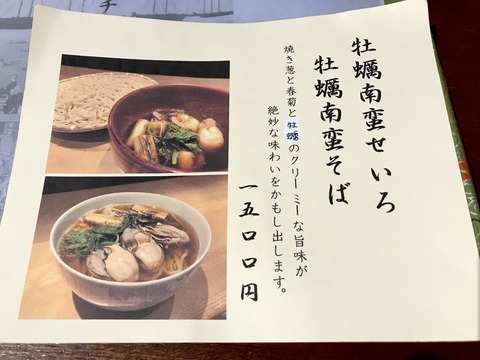 牡蠣南蛮せいろ
牡蠣南蛮そば
焼き葱と春菊と牡蠣のクリーミーな旨味が
絶妙な味わいをかもし出します。
一五〇〇円
チ